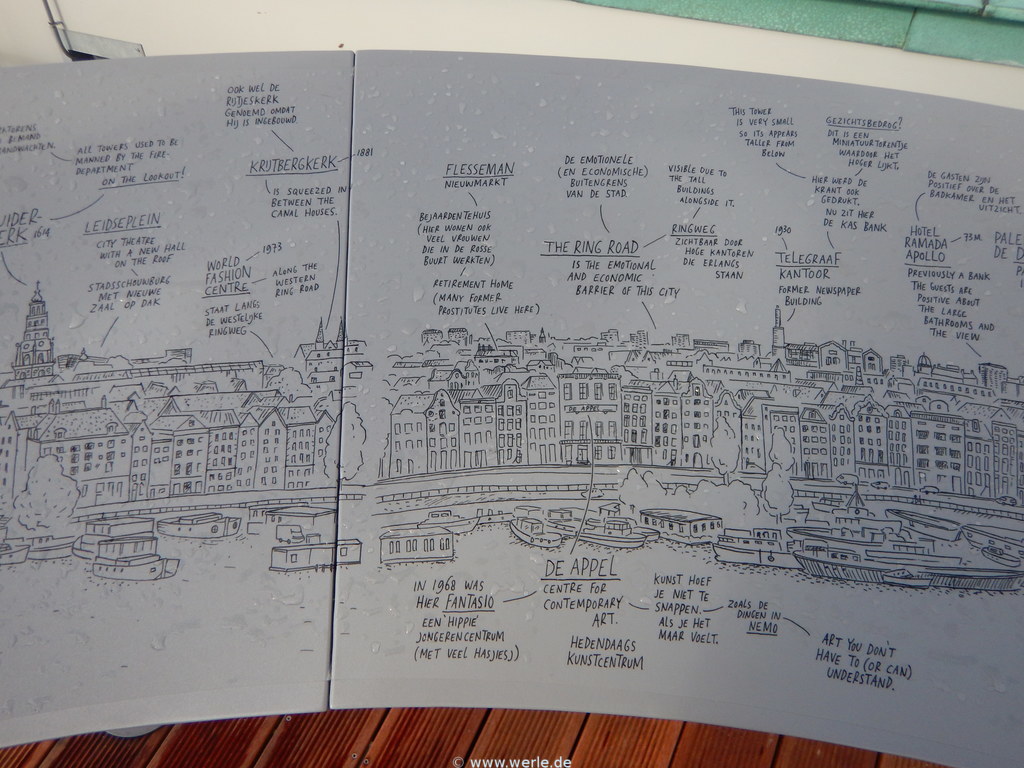 ALL TOWERS USED TO BE
MANNED BY THE FIRE-
DEPARTMENT
ON THE LOOKOUT!
1614
LEIDSEPLEIN
CITY THEATRE
WITH A NEW HALL
ON THE ROOF
STADSSCHOUWBURG
MET NIEUWE
ZAAL OP DAK
OOK WEL DE
RIJTJESKERK
GENOEMD OMDAT
HIJ IS INGEBOUWD.
KRIJTBERGKERK
1881
IS SQUEEZED IN
BETWEEN THE
CANAL HOUSES.
WORLD
FASHION
CENTRE
1973
ALONG THE
WESTERN
RING ROAD
STAAT LANGS
DE WESTELIJKE
RINGWEG
FLESSEMAN
NIEUWMARKT
BEJAARDENTEHUIS
(HIER WONEN OOK
VEEL VROUWEN
DIE IN DE ROSSE
BUURT WERKTEN)
RETIREMENT HOME
(MANY FORMER
PROSTITUTES LIVE HERE)
DE EMOTIONELE
(EN ECONOMISCHE)
BUITENGRENS
VAN DE STAD.
THE RING ROAD
IS THE EMOTIONAL
AND ECONOMIC
BARRIER OF THIS CITY
VISIBLE DUE TO
THE TALL
BUILDINGS
ALONGSIDE IT.
RINGWEG
ZICHTBAAR DOOR
HOGE KANTOREN
DIE ERLANGS
STAAN
THIS TOWER
IS VERY SMALL
SO ITS APPEARS
TALLER FROM
BELOW
GEZICHTSBEDROG?
DIT IS EEN
MINIATUURTORENTJE
WAARDOOR HET
HOGER LIJKT.
HIER WERD DE
KRANT OOK
GEDRUKT.
NU ZIT HIER
DE KAS BANK
1930
TELEGRAAF
KANTOOR
FORMER NEWSPAPER
BUILDING
DE GASTEN ZIJN
POSITIEF OVER DE
BADKAMER EN HET
UITZICHT.
HOTEL
RAMADA
APOLLO
73M.
PREVIOUSLY A BANK
THE GUESTS ARE
POSITIVE ABOUT
THE LARGE
BATHROOMS AND
THE VIEW
DE APPEL
IN 1968 WAS
HIER FANTASIO
EEN 'HIPPIE'
JONGERENCENTRUM
(MET VEEL HASJIESJ)
DE APPEL
CENTRE FOR
CONTEMPORARY
ART.
HEDENDAAGS
KUNSTCENTRUM
KUNST HOEF
JE NIET TE
SNAPPEN.
ALS JE HET
MAAR VOELT.
ZOALS DE
DINGEN IN
NEMO
ART YOU DON'T
HAVE TO (OR CAN)
UNDERSTAND.
© www.werle.de